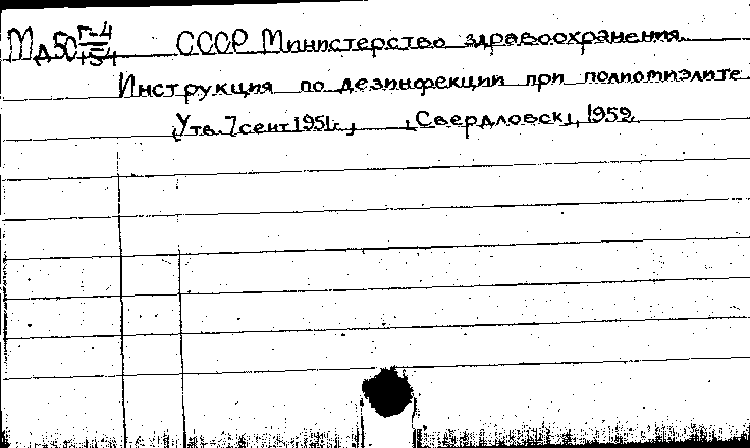 СССР Министерство здравоохранения.
Инструкция по дезинфекции при полиомиэлите
[Утв. 7 сент 1951г.] [Свердловск], 1959.